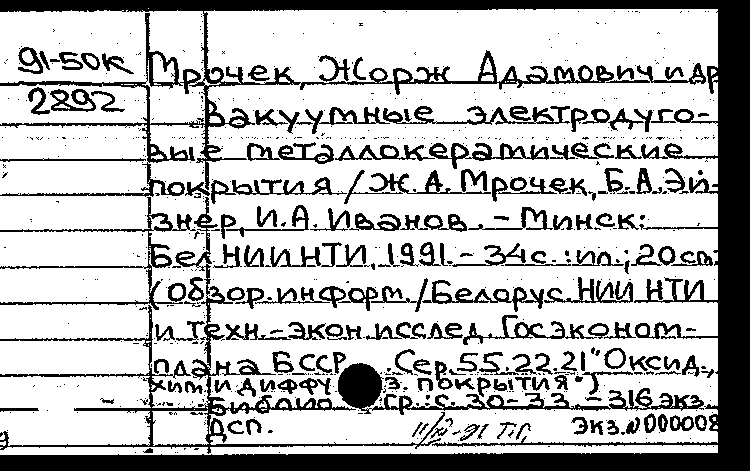 91-50К
2892
Мрочек, Жорж Адамович и др
Вакуумные электродуго-
вые металлокерамические
покрытия / Ж.А. Мрочек, Б.А. Эй-
знер, И.А. Иванов. - Минск:
Бел НИИНТИ, 1991. - 34с.: ил.; 20см.
(Обзор. информ. / Белорус. НИИ НТИ
и техн.-экон. исслед. Госэконом-
плана БССР. Сер. 55.22.21 "Оксид.,
хим. и диффу з. покрытия")
Библио гр.: с. 30-33. - 316 экз.
ДСП.
Экз. N 000008